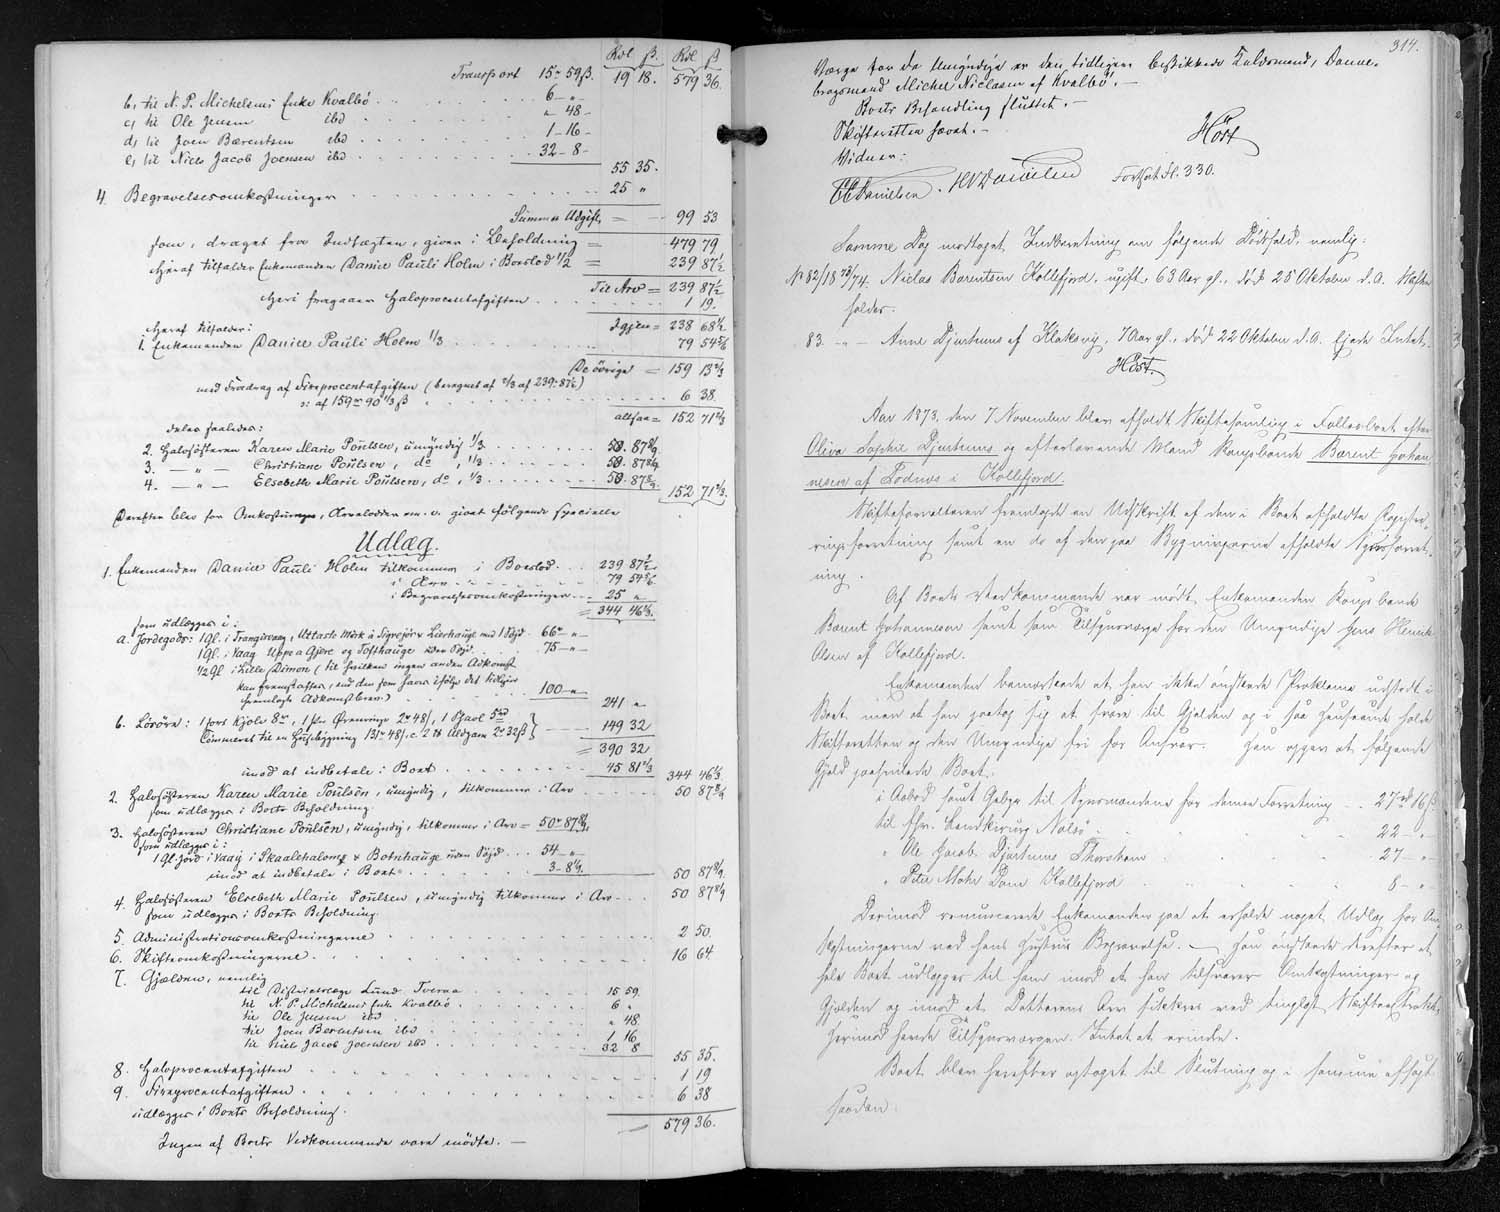 Rdl ß. Rdl ß
Transport 15 " 59 ß. 19 18. 579 36.
b, til N. P. Michelsens Enke Kvalbö 6 - " -
c, til Ole Jensen ibd " 48 -
d, til Joen Bærentsen ibd 1 - 16 -
e, til Niels Jacob Joensen ibd 32 - 8 -
55 35.
4. Begravelsesomkostninger 25 "
Summa Udgift = 99 53
som, draget fra Indtægten, giver i Beholdning = 479 79
Heraf tilfalder Enkemanden Danice Pauli Holm i Boeslod 1/2 = 239 87 1/2
Til Arv = 239 87 1/2
Heri fragaaer Halvprocentafgiften 1 19.
Igjen = 238 68 1/2
Heraf tilfalder:
1. Enkemanden Danice Pauli Holm 1/3 79 54 5/6
De övrige = 159 13 2/3
med Fradrag af Fireprocentafgiften (beregnet af 2/3 af 239 - 87 1/2
ɔ: af 159 " 90 1/3 ß 6 38.
altsaa = 152 71 2/3
deles saaledes:
2. Halvsösteren Karen Marie Poulsen, umyndig 1/3 50. 87 8/9.
3. — " — Christiane Poulsen, do, 1/3 50. 87 8/9.
4. — " — Elsebeth Marie Poulsen, do, 1/3 50. 87 8/9.
152 71 2/3.
Derefter blev for Omkostninger, Arvelodder m. v. gjort følgende specielle
Udlæg.
1. Enkemanden Danice Pauli Holm tilkommer i Boeslod 239 87 1/2
i Arv 79 54 5/6.
i Begravelsesomkostninger 25 "
= 344 46 1/3.
som udlægges i:
a. Jordegods: 1 Gl. i Trangisvaag, Uttaste Mörk á Signejör v Lierhauge med 1 Söjd 66 " - "
1 Gl. i Vaag Uppe a Gjere og Tofthauge uden Söjd 75 - "
1/2 Gl i Lille Dimon (til hvilken ingen anden Adkomst
kan fremskaffes, end den som haves ifölge det tidligere
fremlagte Adkomstbrev.) 100 - "
241 "
b. Lösöre: 1 sort Kjole 8 rd, 1 Par Ørenringe 2 " 48 ß, 1 Sjavl 5 rd
Tömmeret til en Husbygning 131 " 48 ß, c. 2 ℔ Uldgarn 2 " 32 ß 149 32
= 390 32
imod at indbetale i Boet 45 81 2/3
344 46 1/3
2. Halvsösteren Karen Marie Poulsen, umyndig, tilkommer i Arv 50 87 8/9
som udlægges i Boets Beholdning.
3. Halvsösteren Christiane Poulsen, umyndig, tilkommer i Arv = 50 " 87 8/9.
som udlægges i:
1 Gl. Jord i Vaag i Skaalehalong & Botnhauge uden Söjd 54 - "
imod at indbetale i Boet 3 - 8 1/9.
50 87 8/9.
4. Halvsösteren Elsebeth Marie Poulsen, umyndig tilkommer i Arv 50 87 8/9
som udlægges i Boets Beholdning.
5. Administrationsomkostningerne 2 50.
6. Skifteomkostningerne 16 64.
7. Gjælden, nemlig
til Districtslæge Lund Tveraa 15 59.
til N. P. Michelsens Enke Kvalbö 6 "
til Ole Jensen ibd " 48.
til Joen Bærentsen ibd 1 16
til Niels Jacob Joensen ibd 32 8
55 35.
8. Halvprocentafgiften 1 19
9. Fireprocentafgiften 6 38
udlægges i Boets Beholdning.
579 36.
Ingen af Boets Vedkommende vare mödte. —
314.
Værge for de Umyndige er den tidligere beskikkede Kuldsmand, Danne-
brogsmand Michel Niclasen af Kvalbö. -
Boets Behandling sluttet. -
Skifteretten hævet. -
Höst
Vidner:
Danielsen. HNDanielsen Fortsat Fl. 330.
Samme Dag modtoges Indberetning om følgende Dødsfald, nemlig:
No 82/18 73/74. Niclas Barentsen Kollefjord, ugift, 63 Aar gl., död 25 Oktober d. A. Uskifte
holder.
83. - " - Anne Djurhuus af Klaksvig, 7 Aar gl., död 22 Oktober d. A. Ejede Intet.
Höst.
Aar 1873, den 7 November blev afholdt Skiftesamling i Fællesboet efter
Olivia Sophie Djurhuus og efterlevende Mand Kongsbonde Bærent Johan-
nesen af Todnæs i Kollefjord.
Skifteforvalteren fremlagde en Udskrift af den i Boet afholdte Registre-
ringsforretning samt en do af den paa Bygningerne afholdte Synsforret-
ning.
Af Boets Vedkommende var mödt Enkemanden Kongsbonde
Bærent Johannesen samt som Tilsynsværge for den Umyndige Jens Henrik
Olsen af Kollefjord.
Enkemanden bemærkede at han ikke önskede Proklama udstedt i
Boet, men at han paatog sig at svare til Gjælden og i saa Henseende holde
Skifteretten og den Umyndige fri for Ansvar. Han opgav at følgende
Gjæld paahvilede Boet.
i Aabod samt Gebyr til Synsmændene for denne Forretning 27 rd 16 ß
til fhv. Landkirurg Nolsö 22 - "
" Ole Jacob Djurhuus Thorshavn 27 - "
" Peter Mohr Dam Kollefjord 8 - "
Derimod renuncerede Enkemanden paa at erholde noget Udlæg for Om-
kostningerne ved hans Hustrus Begravelse. — Han önskede derefter at
hele Boet udlægges til ham imod at han tilsvarer Omkostninger og
Gjælden og imod at Datterens Arv sikkres ved tinglæst Skifteextrakt,
herimod havde Tilsynsværgen Intet at erindre.
Boet blev herefter optaget til Slutning og i samme afsagt
saadan: